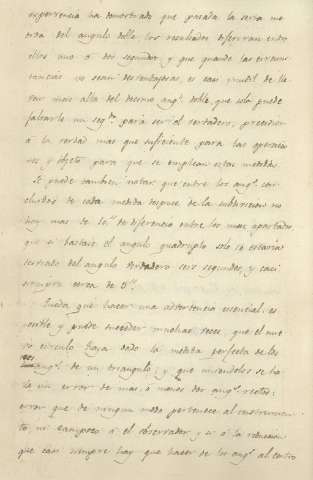 esperiencia ha demostrado que pasada la sexta me
dida del angulo doble los resultados difieren entre
ellos uno ó dos segundos y que quando las circuns
tancias no sean desventajosas, es casi inutil de lle
var mas alla del decimo ang.º doble, que solo puede
faltarle un seg.do para ser el verdadero, precision
á la verdad mas que suficiente para las operacio
nes y objeto para que se emplean estas medidas.
Se puede tambien notar que entre los ang.s con
cluidos de cada medida despues de la subdivision no
hay mas de 10." de diferencia entre los mas apartados
que si bastase el angulo quadruplo solo se estaria
del angulo verdadero seis segundos, y casi
siempre cerca de 5."
Queda que hacer una advertencia esencial: es
posible y puede suceder muchas veces, que el mue
vo circulo haya dado la medida perfecta de los
tres ang.s de un triangulo; y que mirandolos se ha
lla un error de mas, ó menos dos ang.s rectos:
error que de ningun modo pertenece al instrumen
to, ni tampoco á el observador, y sí á la reduccion
que casi siempre hay que hacer de los ang.s al centro